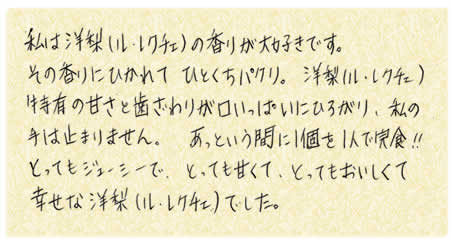 私は洋梨(ル・レクチェ)の香りが大好きです。
その香りにひかれて ひとくちパクリ。 洋梨(ル・レクチェ)
特有の甘さと歯ざわりが口いっぱいにひろがり、私の
手は止まりません。 あっという間に1個を1人で完食!!
とってもジューシーで、とっても甘くて、とってもおいしくて
幸せな洋梨(ル・レクチェ)でした。